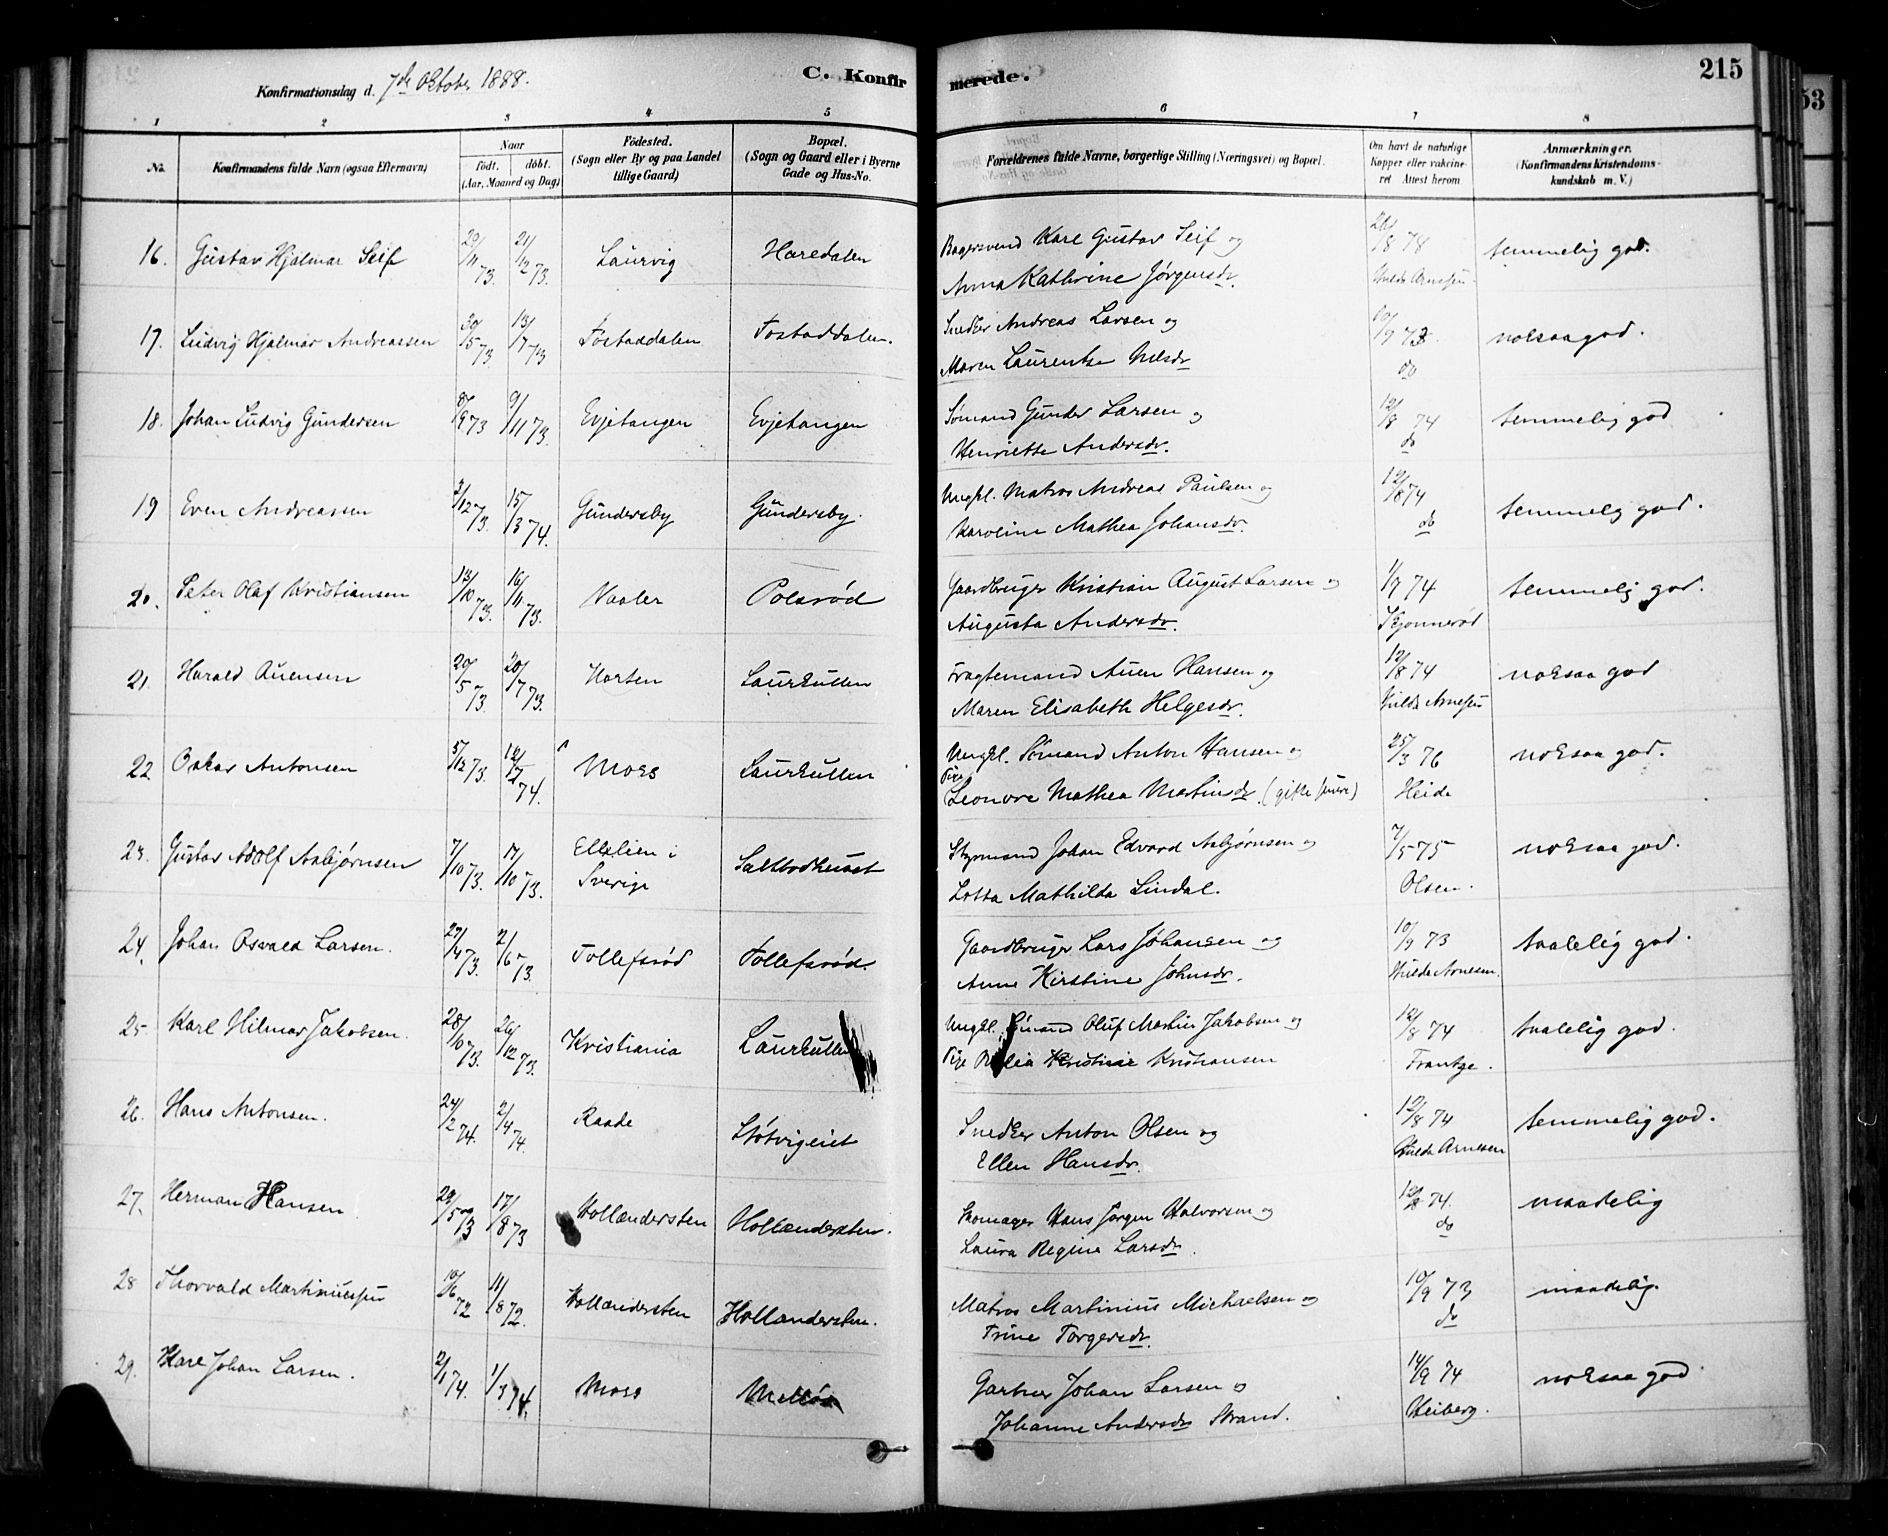 215
C. Konfirmerede.
Konfirmationsdag d. 7de Oktober 1888.
1 2 3 4 5 6 7 8
No.
Konfirmandens fulde Navn (ogsaa Efternavn)
Naar
født. døbt.
(Aar, Maaned og Dag)
Fødested.
(Sogn eller By og paa Landet
tillige Gaard)
Bopæl.
(Sogn og Gaard eller i Byerne
Gade og Hus-No.
Forældrenes fulde Navne, borgerlige Stilling (Næringsvei) og Bopæl.
Om havt de naturlige
Kopper eller vakcine-
ret Attest herom
Anmærkninger.
(Konfirmandens Kristendoms-
kundskab m. V.)
16. Gustav Hjalmar Seif 29/11 73. 21/12 73. Laurvig Haredalen Bagersvend Karl Gustav Seif og 26/8 78 temmelig god.
Anna Kathrine Jørgensdr. Hulda Arnesen
17. Ludvig Hjalmar Andreassen 30/5 73. 13/7 73 Tostaddalen Tostaddalen. Snedker Andreas Larsen og 10/9 73. noksaa god.
Maren Laurentse Nilsdr do
18. Johan Ludvig Gundersen 8/9 73 9/11 73. Evjetangen Evjetangen Sømand Gunder Larsen og 12/8 74 temmelig god
Henriette Andersdr. do
19 Even Andreassen 3/12 73. 15/3 74. Gundersby Gundersby. Ungkl. Matros Andreas Paulsen og 12/8 74 temmelig god.
Karoline Mathea Johansdr. do
20. Peter Olaf Kristiansen 13/10 73. 16/11 73. Vaaler Polsrød Gaardbruger Kristian August Larsen og 1/9 74 temmelig god.
Augusta Andersdr. Skjonnerød
21. Harald Auensen 20/5 73. 20/7 73. Horten Laurkullen Fragtemand Auen Hansen og 12/8 74 noksaa god
Maren Elisabeth Helgesdr. Hulda Arnesen
22 Oskar Antonsen 5/12 73. 12/7 74. Moss Laurkullen Ungkl. Sømand Anton Hansen og 25/3 76 noksaa god.
Pige Leonore Mathea Martinsdr. (gifte senere) Heide
23. Gustav Adolf Asbjørnsen 7/10 73. 17/10 73. Ellelien i Saltbodhuset Styrmand Johan Edvard Asbjørnsen og 7/5 75 noksaa god.
Sverige Lotta Mathilda Lindal. Olsen.
24. Johan Osvald Larsen. 29/4 73. 2/6 73. Tollefsrød Tollefsrød. Gaardbruger Lars Johansen og 10/9 73 taalelig god.
Anne Kirstine Johnsdr. Hulda Arnesen.
25 Karl Hilmar Jakobsen. 28/6 73. 26/12 73. Kristiania Laurkullen Ungkl. Sømand Oluf Martin Jakobsen og 12/8 74 taalelig god.
Pige Kristine Kristiansen Frantze.
26. Hans Antonsen. 24/2 74. 2/4 74. Raade Støtvigeiet Snedker Anton Olsen og 12/8 74 temmelig god.
Ellen Hansdr. Hulda Arnesen
27. Herman Hansen. 29/5 73 17/8 73 Hollændersten Hollændersten. Skomager Hans Jørgen Halvorsen og 12/8 74. maadelig
Laura Regine Larsdr. do
28 Thorvald Martiniussen 10/6 72 11/8 72. Hollændersten Hollændersten. Matros Martinius Michaelsen og 10/9 73 maadelig.
Trine Torgersdr. do
29. Karl Johan Larsen. 2/1 74. 1/3 74. Moss Melløs Gartner Johan Larsen og 14/9 74 noksaa god
Johanne Andersdr Strand. Heiberg.
53